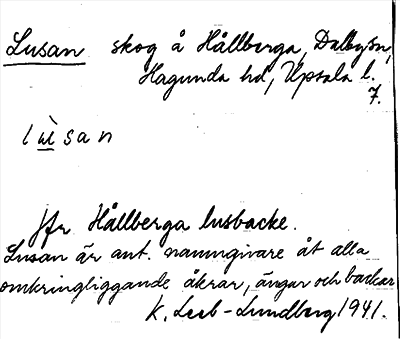 Lusan skog å Hållberga, Dalbysn,
Hagunda hd, Upsala l.
7.
lùsan
Jfr Hållberga lusbacke.
Lusan är ant. namngivare åt alla
omkringliggande åkrar, ängar och backar
K. Leeb-Lundberg 1941.